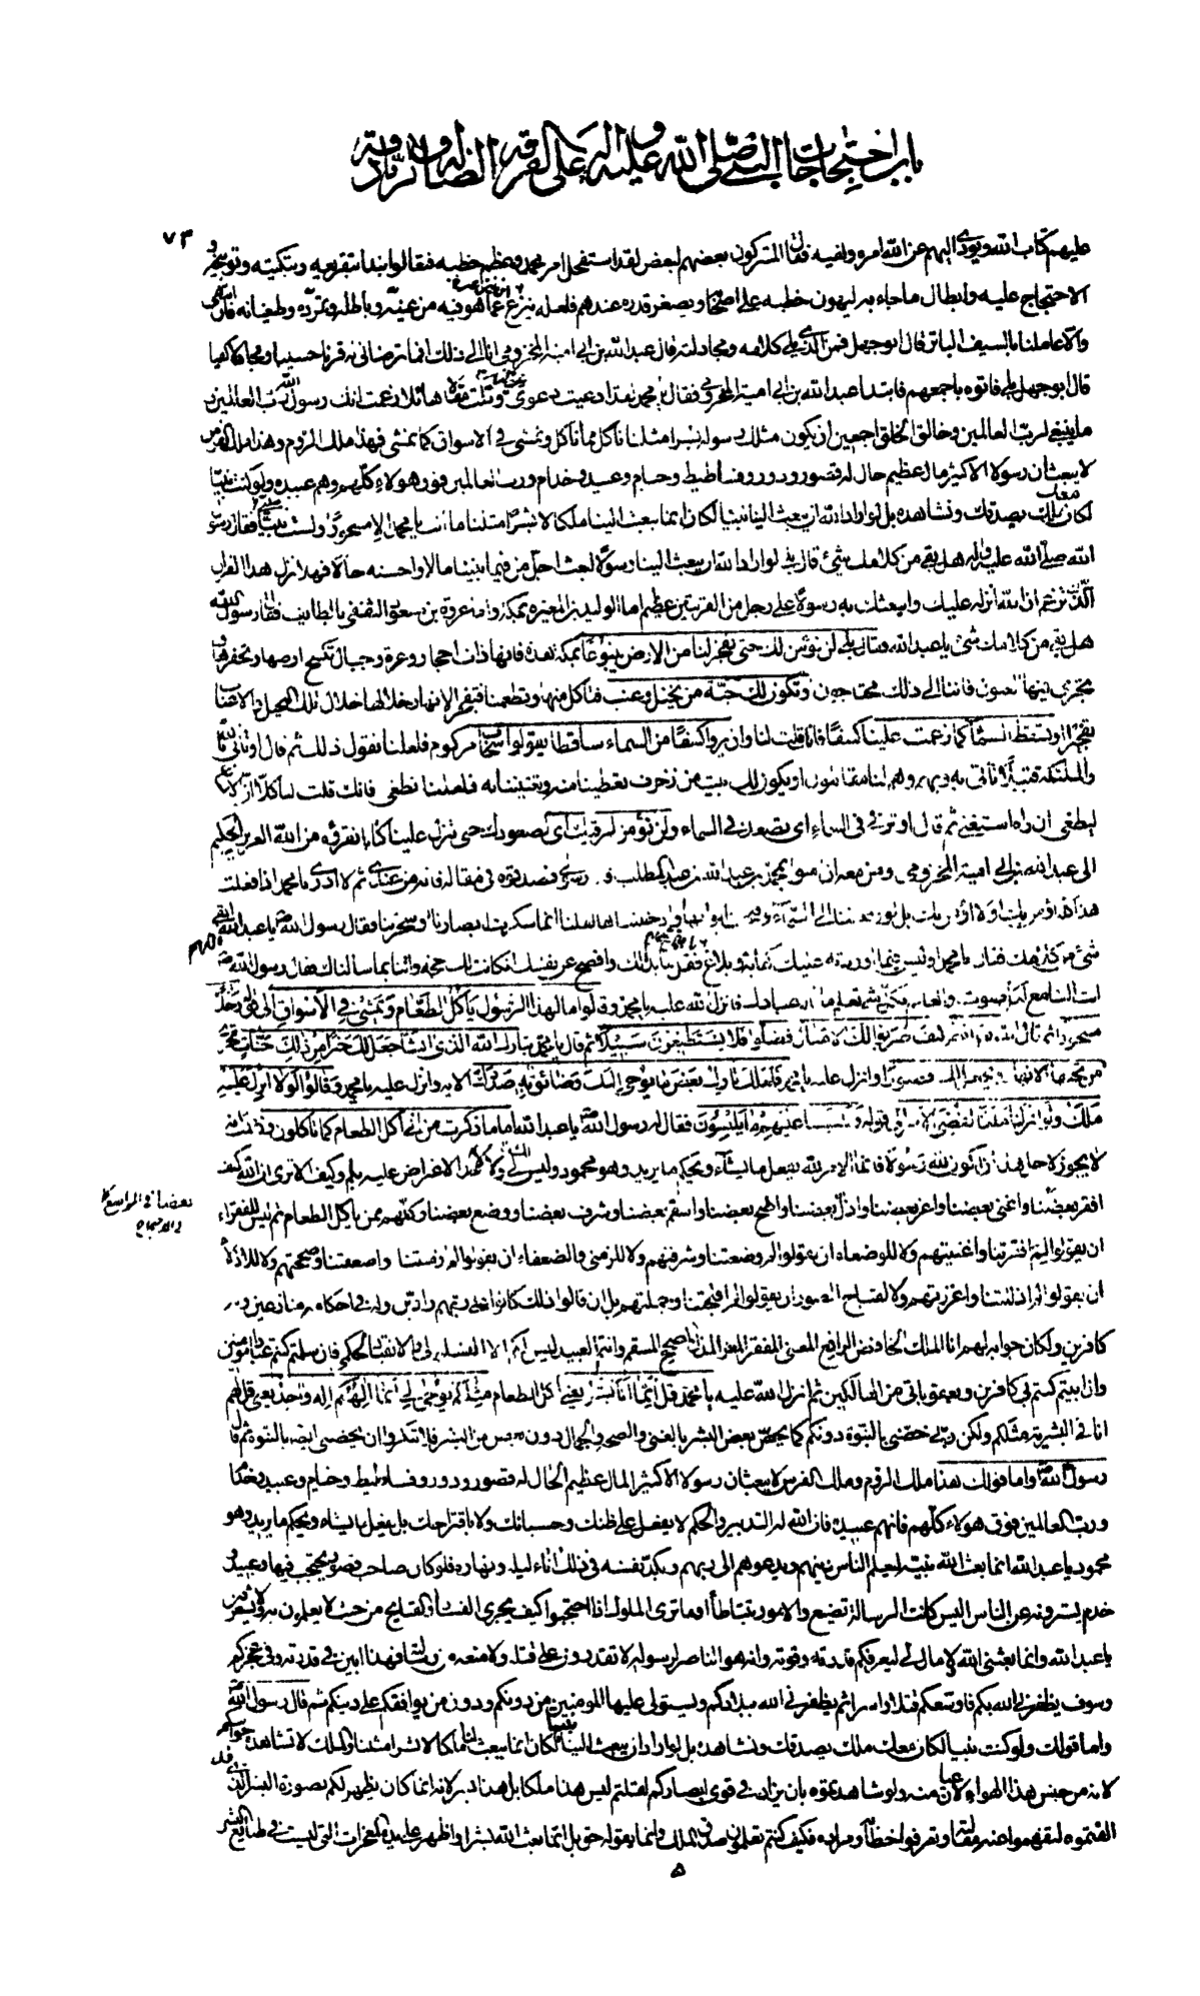 باب احتجاجات النبي صلى الله عليه وآله على الفرق الضالة والزنادقة
٧٣
عليهم كتاب الله ويؤدي اليهم عن الله امره ونهيه فقال المشركون بعضهم لبعض لقد استفحل امر محمد وعظم خطبه فتعالوا نبدا بتقريعه وتبكيته وتوبيخه و
الاحتجاج عليه وابطال ما جاء به ليهون خطبه على اصحابه ويصغر قدره عندهم فلعله ينزع عما هو فيه من غيه وباطله وتمرده وطغيانه فان انتهى
والا عاملناه بالسيف الباتر قال ابو جهل فمن الذي يلي كلامه ومجادلته قال عبد الله بن ابي امية المخزومي انا الى ذلك افما ترضاني له قرنا حسيبا ومجادلا كفيا
قال ابو جهل بلى فاتوه باجمعهم فابتدا عبد الله بن ابي امية المخزومي فقال يا محمد لقد ادعيت دعوى عظيمة وقلت مقالا هائلا زعمت انك رسول الله رب العالمين و
ما ينبغي لرب العالمين وخالق الخلق اجمعين ان يكون مثلك رسوله بشرا مثلنا تاكل مما ناكل وتمشي في الاسواق كما نمشي فهذا ملك الروم وهذا ملك الفرس
لا يبعثان رسولا الا كثير مال عظيم حال له قصور ودور وفساطيط وخيام وعبيد وخدام ورب العالمين فوق هؤلاء كلهم وهم عبيده ولو كنت نبيا
لكان معك ملك يصدقك ونشاهده بل لو اراد الله ان يبعث الينا نبيا لكان انما يبعث الينا ملكا لا بشرا مثلنا ما انت يا محمد الا مسحورا ولست بنبي فقال رسول
الله صلى الله عليه وآله هل بقي من كلامك شئ قال بلى لو اراد الله ان يبعث الينا رسولا لبعث اجل من فيما بيننا مالا واحسنه حالا فهلا نزل هذا القران
الذي تزعم ان الله انزله عليك وابتعثك به رسولا على رجل من القريتين عظيم اما الوليد بن المغيرة بمكة واما عروة بن مسعود الثقفي بالطايف فقال رسول الله
هل بقي من كلامك شئ يا عبد الله فقال بلى لن نؤمن لك حتى تفجر لنا من الارض ينبوعا بمكة هذه فانها ذات احجار وعرة وجبال تكسح ارضها وتحفرها و
تجري فيها العيون فاننا الى ذلك محتاجون او تكون لك جنة من نخيل وعنب فتاكل منها وتطعمنا فتفجر الانهار خلالها خلال تلك النخيل والاعناب
تفجيرا او تسقط السماء كما زعمت علينا كسفا فانك قلت لنا وان يروا كسفا من السماء ساقطا يقولوا سحاب مركوم فلعلنا نقول ذلك ثم قال او تاتي بالله
والملئكة قبيلا تاتي به وبهم وهم لنا مقابلون او يكون لك بيت من زخرف تعطينا منه وتغنينا به فلعلنا نطغى فانك قلت لنا كلا ان الانسان
ليطغى ان راه استغنى ثم قال او ترقى في السماء اي تصعد في السماء ولن نؤمن لرقيك اي لصعودك حتى تنزل علينا كتابا نقرؤه من الله العزيز الحكيم
الى عبد الله بن ابي امية المخزومي ومن معه ان امنوا بمحمد بن عبد الله بن عبد المطلب فانه رسولي فصدقوه في مقاله فانه من عندي ثم لا ادري يا محمد اذا فعلت
هذا كله اؤمن بك اولا اؤمن بك بل لو رفعتنا الى السماء وفتحت ابوابها وادخلتناها لقلنا انما سكرت ابصارنا وسحرتنا فقال رسول الله يا عبد الله ابقى
شئ من كلامك فقال يا محمد اوليس فيما اوردته عليك كفاية وبلاغ فقل ما بدا لك وافصح عن نفسك ان كانت لك حجة واتنا بما سالناك فقال رسول الله
اللهم
انت السامع لكل صوت والعالم بكل شئ تعلم ما قاله عبادك فانزل الله عليه يا محمد وقالوا ما لهذا الرسول ياكل الطعام ويمشي في الاسواق الى قوله رجلا
مسحورا ثم قال الله انظر كيف ضربوا لك الامثال فضلوا فلا يستطيعون سبيلا ثم قال يا محمد تبارك الذي ان شاء جعل لك خيرا من ذلك جنات تجري
من تحتها الانهار ويجعل لك قصورا وانزل عليه يا محمد فلعلك تارك بعض ما يوحى اليك وضائق به صدرك الاية وانزل عليه يا محمد وقالوا لولا انزل عليه
ملك ولو انزلنا ملكا لقضي الامر الى قوله وللبسنا عليهم ما يلبسون فقال له رسول الله يا عبد الله اما ما ذكرت من اني اكل الطعام كما تاكلون وزعمت انه
لا يجوز لاجل هذا ان اكون لله رسولا فانما الامر لله يفعل ما يشاء ويحكم ما يريد وهو محمود وليس لك ولا لاحد الاعتراض عليه بلم وكيف الا ترى ان الله كيف
افقر بعضنا واغنى بعضنا واعز بعضنا واذل بعضنا واصح بعضنا واسقم بعضنا وشرف بعضنا ووضع بعضنا وكلهم ممن ياكل الطعام ثم ليس للفقراء
ان يقولوا لم افقرتنا واغنيتهم ولا للوضعاء ان يقولوا لم وضعتنا وشرفتهم ولا للزمنى والضعفاء ان يقولوا لم ازمنتنا واضعفتنا وصححتهم ولا للاذلاء
ان يقولوا لم اذللتنا واعززتهم ولا لقباح الصور ان يقولوا لم اقبحتنا وجملتهم بل ان قالوا ذلك كانوا على ربهم رادين وله في احكامه منازعين وبه
كافرين ولكان جوابه لهم انا الملك الخافض الرافع المغني المفقر المعز المذل المصحح المسقم وانتم العبيد ليس لكم الا التسليم لي والانقياد لحكمي فان سلمتم كنتم عبادا مؤمنين
وان ابيتم كنتم بي كافرين وبعقوباتي من الهالكين ثم انزل الله عليه يا محمد قل انما انا بشر يعني اكل الطعام مثلكم يوحى الي انما الهكم اله واحد يعني قل لهم
انا في البشرية مثلكم ولكن ربي خصني بالنبوة دونكم كما يخص بعض البشر بالغنى والصحة والجمال دون بعض من البشر فلا تنكروا ان يخصني ايضا بالنبوة ثم قال
رسول الله واما قولك هذا ملك الروم وملك الفرس لا يبعثان رسولا الا كثير المال عظيم الحال له قصور ودور وفساطيط وخيام وعبيد وخدام
ورب العالمين فوق هؤلاء كلهم فانهم عبيده فان الله له التدبير والحكم لا يفعل على ظنك وحسبانك ولا باقتراحك بل يفعل ما يشاء ويحكم ما يريد وهو
محمود يا عبد الله انما بعث الله نبيه ليعلم الناس دينهم ويدعوهم الى ربهم ويكد نفسه في ذلك اناء ليله ونهاره فلو كان صاحب قصور يحتجب فيها وعبيد و
خدم يسترونه عن الناس اليس كانت الرسالة تضيع والامور تتباطأ اوما ترى الملوك اذا احتجبوا كيف يجري الفساد والقبايح من حيث لا يعلمون به ولا يشعرون
يا عبد الله وانما بعثني الله ولا مال لي ليعرفكم قدرته وقوته وانه هو الناصر لرسوله لا تقدرون على قتله ولا منعه من رسالته فهذا ابين في قدرته وفي عجزكم
وسوف يظفرني الله بكم فاوسعكم قتلا واسرا ثم يظفرني الله ببلادكم ويستولي عليها المؤمنين من دونكم ودون من يوافقكم على دينكم ثم قال رسول الله
واما قولك ولو كنت نبيا لكان معك ملك يصدقك ونشاهده بل لو اراد ان يبعث الينا نبيا لكان انما يبعث لنا ملكا لا بشرا مثلنا والملك لا تشاهده حواسكم
لانه من جنس هذا الهواء لا عيان منه ولو شاهدتموه بان يزاد في قوى ابصاركم لقلتم ليس هذا ملكا بل هذا بشر لانه انما كان يظهر لكم بصورة البشر الذي قد
الفتموه لتفهموا عنه مقالته وتعرفوا خطابه ومراده فكيف كنتم تعلمون صدق الملك وانما يقوله حق بل انما بعث الله بشرا واظهر على يده المعجزات التي ليست في طبايع البشر